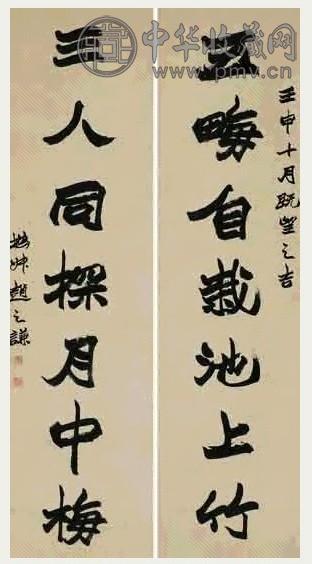 中华收藏网
www.pmv.cn
壬申十月既望之吉
五畮自栽池上竹
三人同探月中梅
撝叔趙之謙